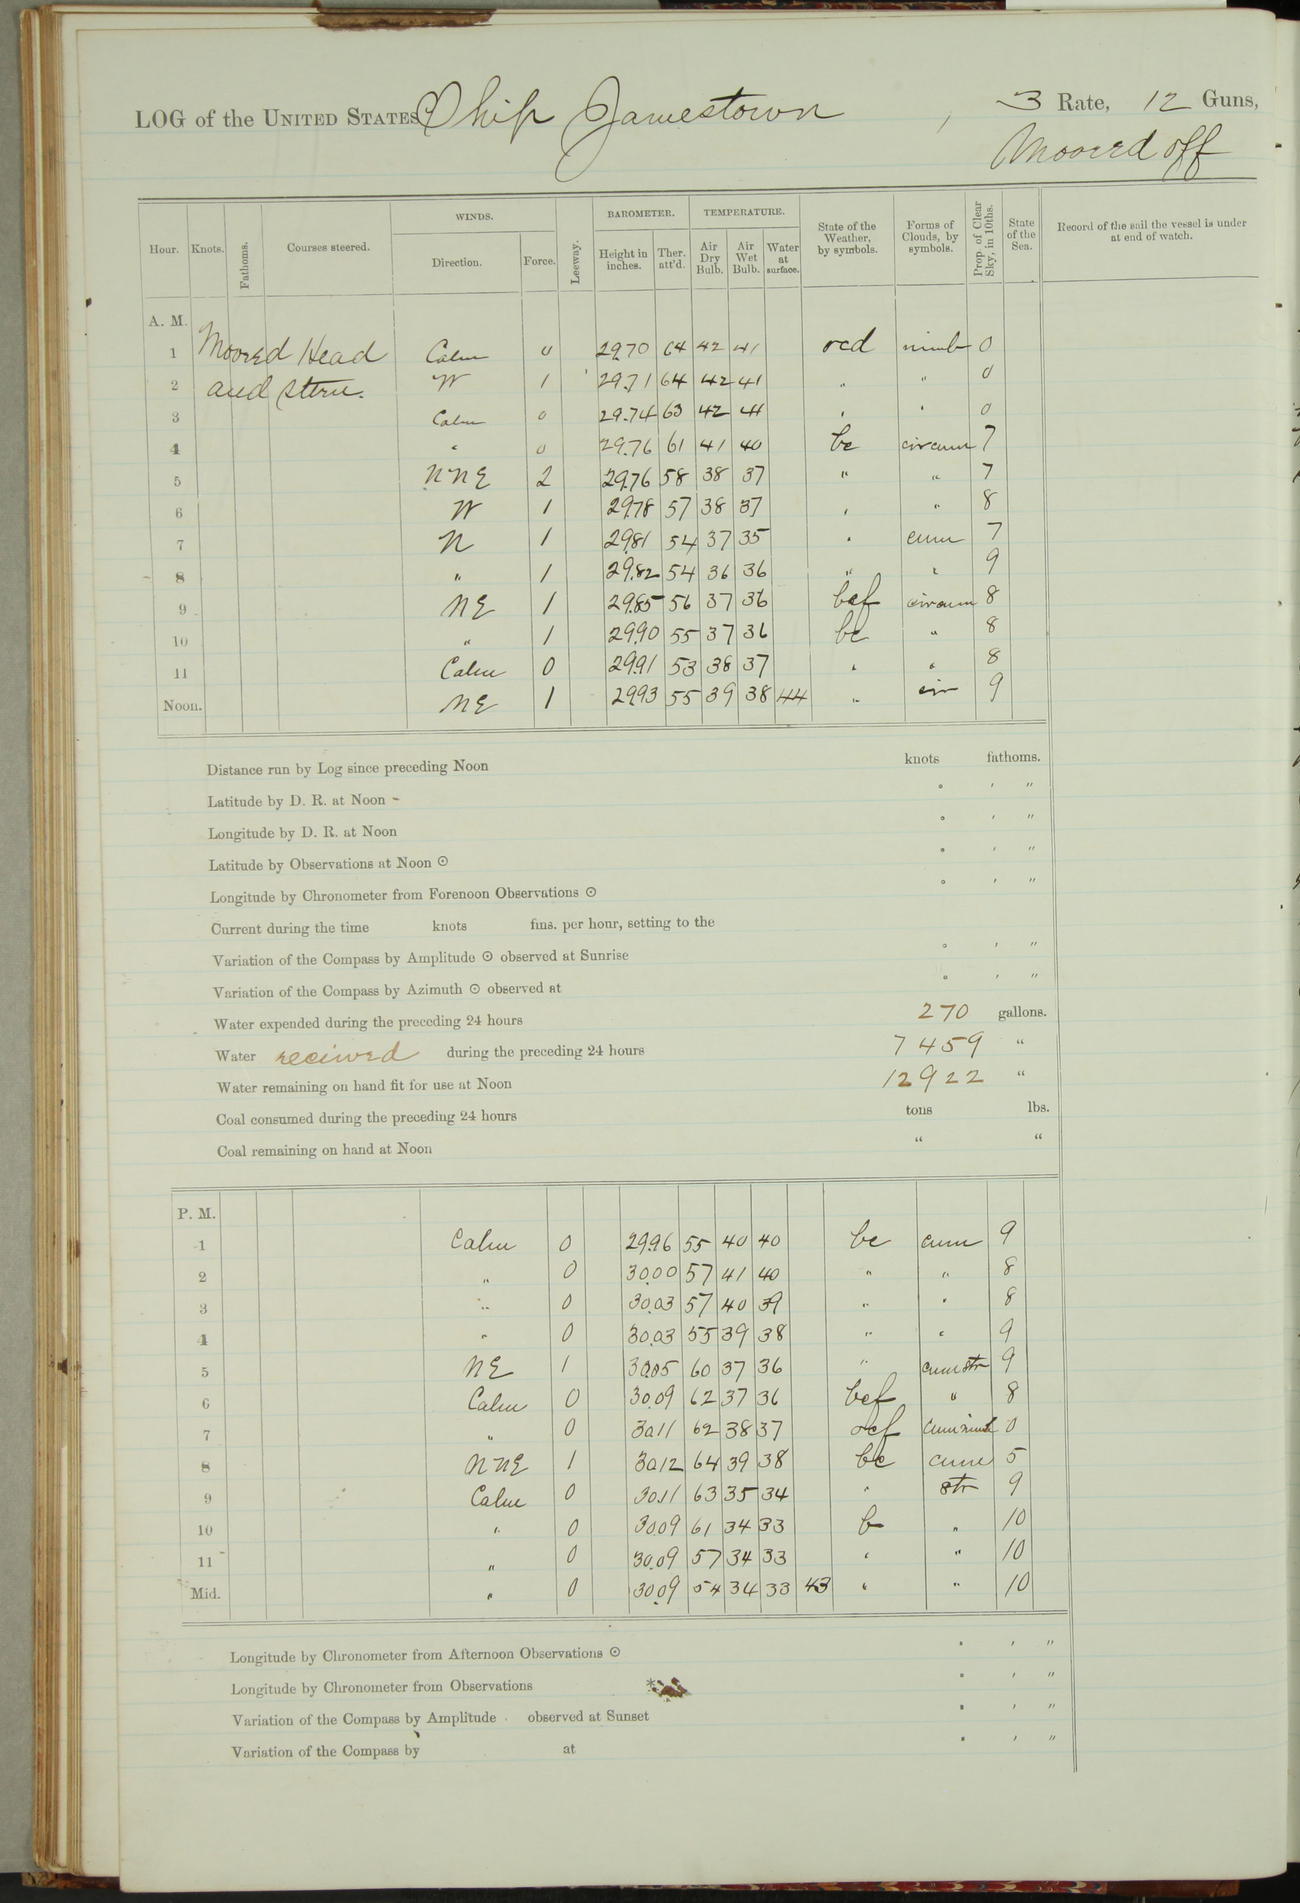 LOG of the UNITED STATES Ship Jamestown, 3 Rate, 12 Guns,
Moored off
Hour. Knots. Fathoms. Courses steered. WINDS. Direction. Force. Leeway. BAROMETER. Height in inches. Ther. att'd. TEMPERATURE. Air Dry Bulb. Air Wet Bulb. Water at surface. State of the Weather, by symbols. Forms of Clouds, by symbols. Prop. of Clear Sky, in 10ths. State of the Sea. Record of the sail the vessel is under at end of watch.
A. M.
1 Moored Head Calm 0 29.70 64 42 41 ocd nimb 0
2 and Stern. W 1 29.71 64 42 41 " " 0
3 Calm 0 29.74 63 42 41 " " 0
4 " 0 29.76 61 41 40 bc circum 7
5 NNE 2 29.76 58 38 37 " " 7
6 W 1 29.78 57 38 37 " " 8
7 N 1 29.81 54 37 35 " cum 7
8 " 1 29.82 54 36 36 " " 9
9 NE 1 29.85 56 37 36 bcf circum 8
10 " 1 29.90 55 37 36 bc " 8
11 Calm 0 29.91 53 38 37 " " 8
Noon. NE 1 29.93 55 39 38 44 " cir 9
Distance run by Log since preceding Noon knots fathoms.
Latitude by D. R. at Noon ° ′ ″
Longitude by D. R. at Noon ° ′ ″
Latitude by Observations at Noon ⊙ ° ′ ″
Longitude by Chronometer from Forenoon Observations ⊙ ° ′ ″
Current during the time knots fms. per hour, setting to the
Variation of the Compass by Amplitude ⊙ observed at Sunrise ° ′ ″
Variation of the Compass by Azimuth ⊙ observed at ° ′ ″
Water expended during the preceding 24 hours 270 gallons.
Water received during the preceding 24 hours 7459 "
Water remaining on hand fit for use at Noon 12922 "
Coal consumed during the preceding 24 hours tons lbs.
Coal remaining on hand at Noon " "
P. M.
1 Calm 0 29.96 55 40 40 bc cum 9
2 " 0 30.00 57 41 40 " " 8
3 " 0 30.03 57 40 39 " " 8
4 " 0 30.03 55 39 38 " " 9
5 NE 1 30.05 60 37 36 " cumstr 9
6 Calm 0 30.09 62 37 36 bcf " 8
7 " 0 30.11 62 38 37 ocf cumnimb 0
8 NNE 1 30.12 64 39 38 bc cum 5
9 Calm 0 30.11 63 35 34 " str 9
10 " 0 30.09 61 34 33 b " 10
11 " 0 30.09 57 34 33 " " 10
Mid. " 0 30.09 54 34 33 43 " " 10
Longitude by Chronometer from Afternoon Observations ⊙ ° ′ ″
Longitude by Chronometer from Observations * ° ′ ″
Variation of the Compass by Amplitude observed at Sunset ° ′ ″
Variation of the Compass by at ° ′ ″